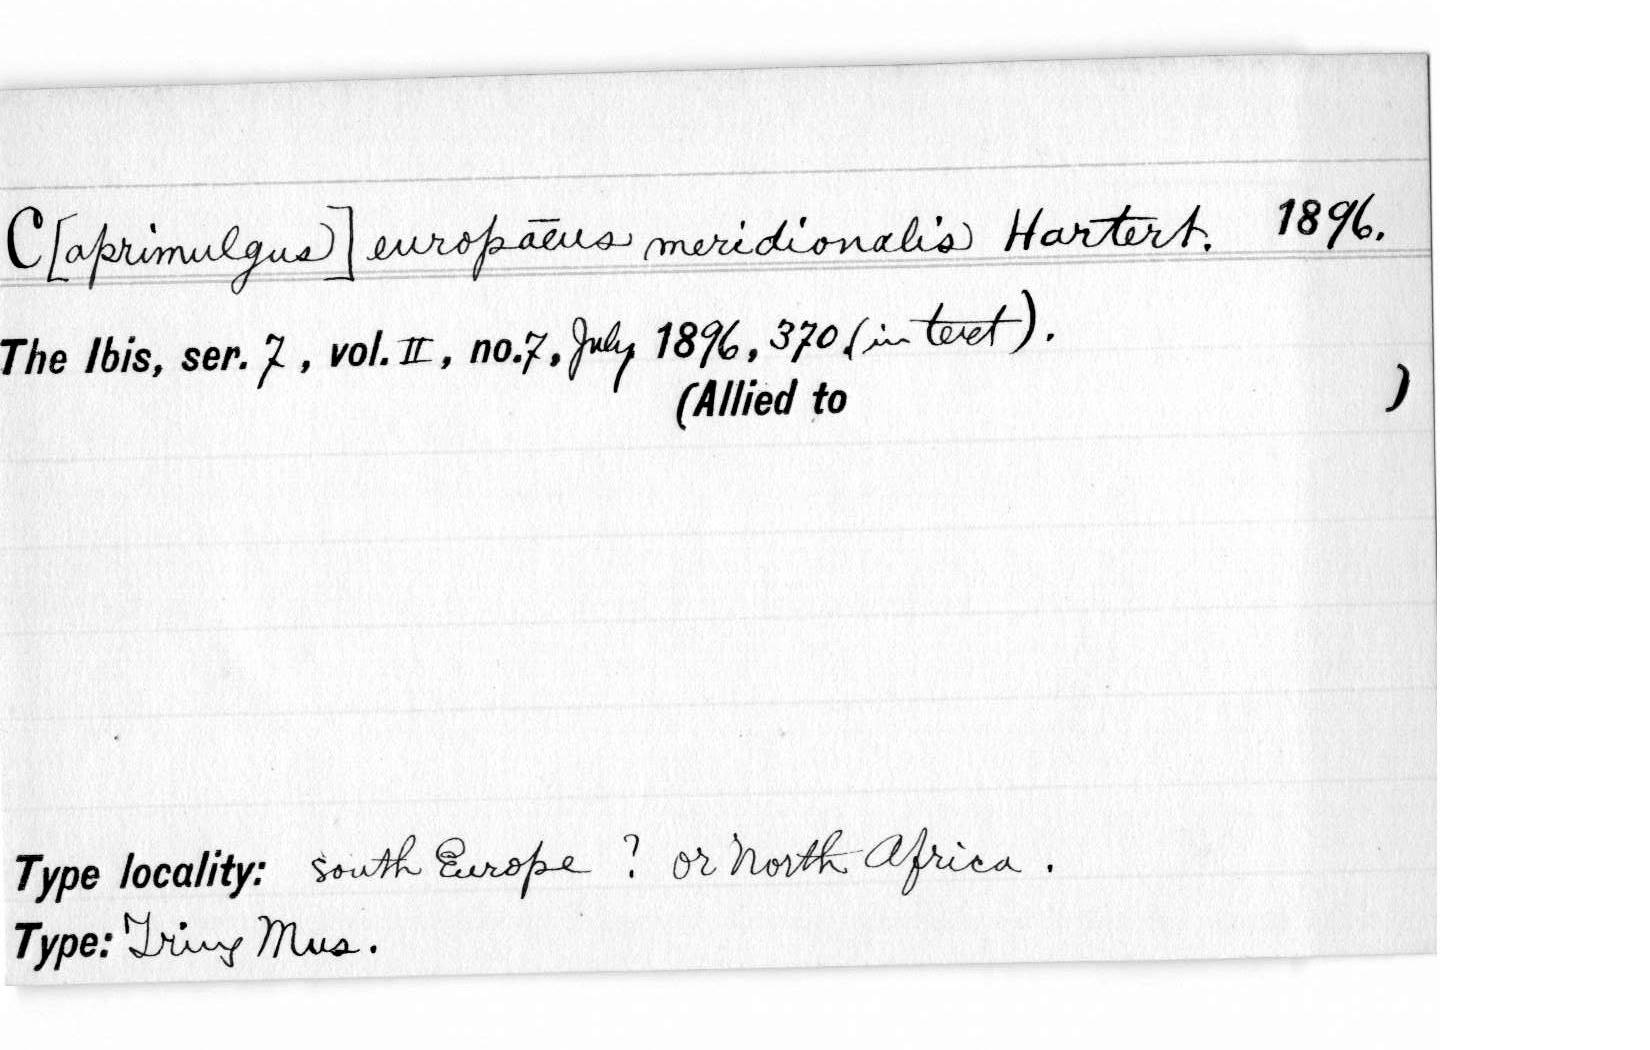 C[aprimulgus] europāeus meridionalis Hartert. 1896.
The Ibis, ser. 7, vol. II, no. 7, July 1896, 370 (in text).
(Allied to )
Type locality: south Europe ? or North Africa.
Type: Tring Mus.